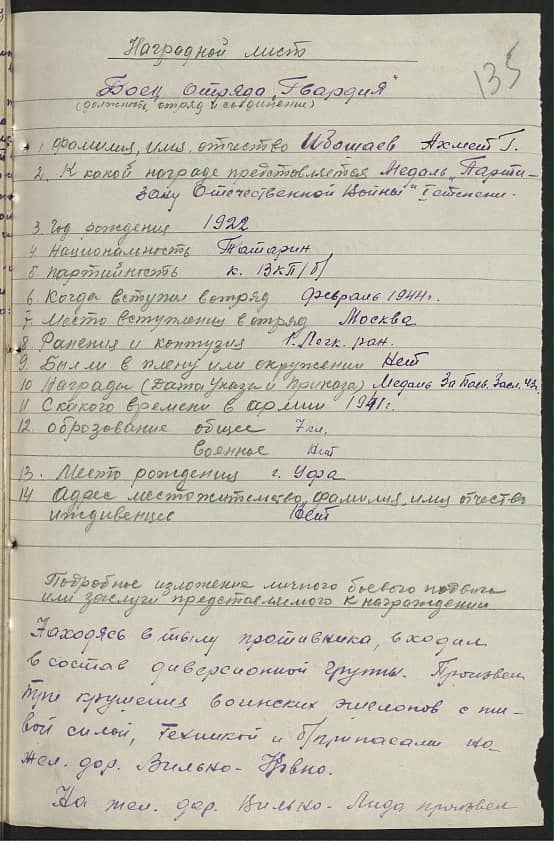 135
Наградной лист
Боец отряда "Гвардия"
(должность, отряд и соединении)
1. фамилия, имя, отчество Ахмет Г.
2. К какой награде представляется Медаль "Парти-
зану Отечественной Войны" I степени.
3. Год рождения 1922
4. Национальность Татарин
5. партийность к. ВКП/б/
6. Когда вступил в отряд февраль 1944г.
7. Место вступления в отряд Москва
8 Ранения и контузия 1. Легк. ран.
9. Были ли в плену или окружении Нет
10 Награды (Дата Указа и Приказа) Медаль За Боев. Засл. 43г.
11 С какого времени в армии 1941г.
12. оброзование общее 7 кл.
военное нет
13. Место рождения г. Уфа
14 Адрес местожительства, фамилия, имя отчество
иждивенцев Нет
Подробное изложение личного боевого подвига
или заслуги представляемого к награждении
Находясь в тылу противника, входил
в состав диверсионной группы. Произвел
три крушения воинских эшелонов с жи-
вой силой, техникой и б/припасами на
жел. дор. Вильно-
На жел. дор. Вильно-Лида произвел